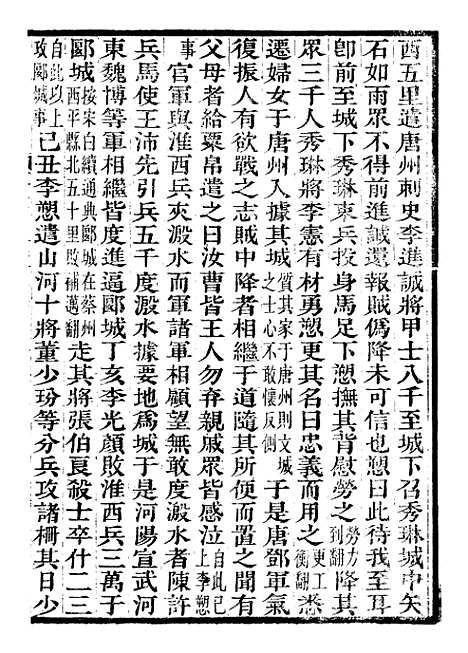 酉五里遣唐州刺史李進誠將甲士八千至城下召秀琳城中矢
石如雨眾不得前進誠還報賊偽降未可信也愬曰此待我至耳
卽前至城下秀琳束兵投身馬足下愬撫其背慰勞之勞力到翻降其
眾三千人秀琳將李憲有材勇愬更其名曰忠義而用之更工衡翻悉
遷婦女于唐州入據其城質其家于唐州則文城之士心不敢懷反側于是唐鄧軍氣
復振人有欲戰之志賊中降者相繼于道隨其所便而置之聞有
父母者給粟帛遣之曰汝曹皆王人勿弃親戚眾皆感泣自此已上李愬
事官軍與淮西兵夾溵水而軍諸軍相顧望無敢度溵水者陳許
兵馬使王沛先引兵五千度溵水據要地為城于是河陽宣武河
東魏博等軍相繼皆度進逼郾城丁亥李光顏敗淮西兵三萬于
郾城按宋白續通典郾城在蔡州西平縣北五十里敗補邁翻走其將張伯良殺士卒什二三
自此以上攻郾城事己丑李愬遣山河十將董少玢等分兵攻諸柵其日少